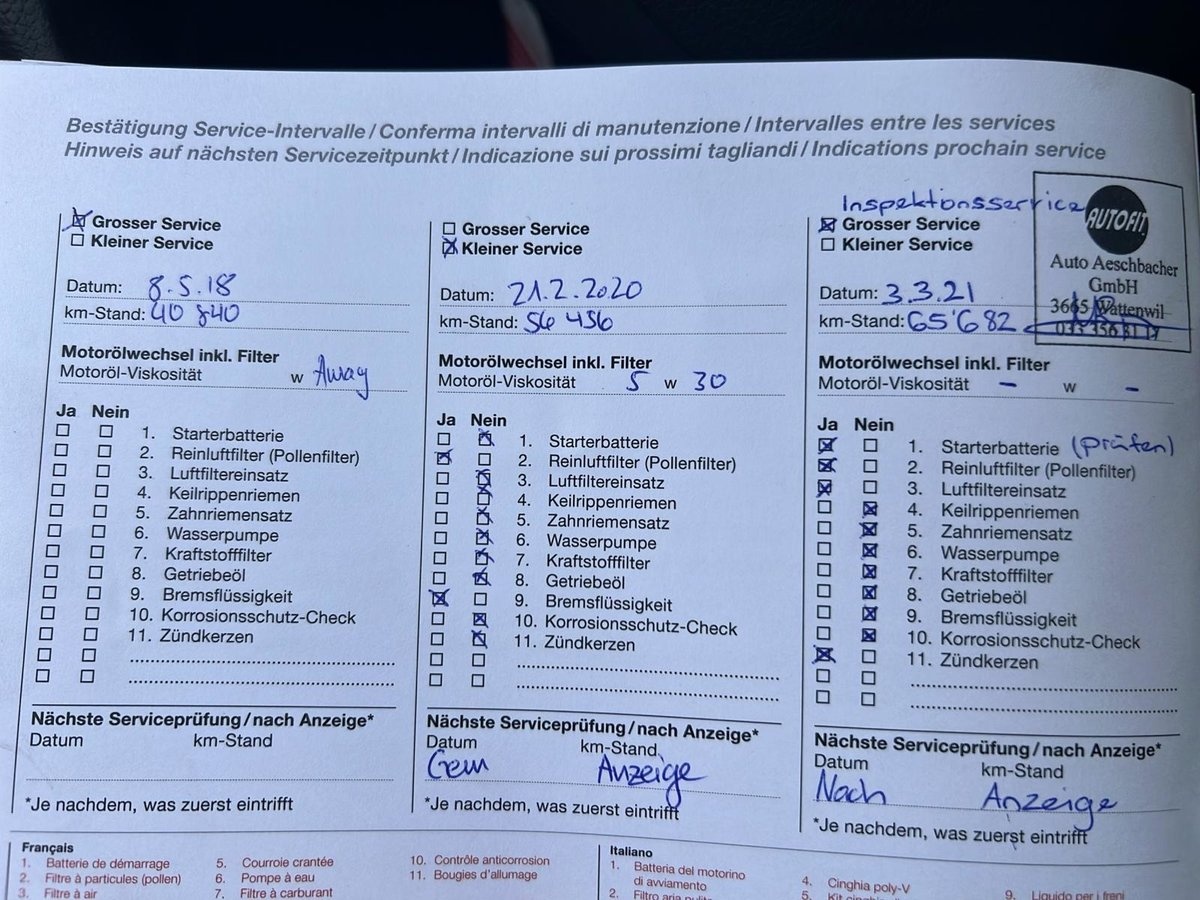 Bestätigung Service-Intervalle / Conferma intervalli di manutenzione / Intervalles entre les services
Hinweis auf nächsten Servicezeitpunkt / Indicazione sui prossimi tagliandi / Indications prochain service
Grosser Service
Kleiner Service
Datum: 8.5.18
km-Stand: 40 840
Motorölwechsel inkl. Filter
Motoröl-Viskosität w
Ja Nein
1. Starterbatterie
2. Reinluftfilter (Pollenfilter)
3. Luftfiltereinsatz
4. Keilrippenriemen
5. Zahnriemensatz
6. Wasserpumpe
7. Kraftstofffilter
8. Getriebeöl
9. Bremsflüssigkeit
10. Korrosionsschutz-Check
11. Zündkerzen
Nächste Serviceprüfung / nach Anzeige*
Datum km-Stand
*Je nachdem, was zuerst eintrifft
Grosser Service
Kleiner Service
Datum: 21.2.2020
km-Stand: 56 456
Motorölwechsel inkl. Filter
Motoröl-Viskosität 5 w 30
Ja Nein
1. Starterbatterie
2. Reinluftfilter (Pollenfilter)
3. Luftfiltereinsatz
4. Keilrippenriemen
5. Zahnriemensatz
6. Wasserpumpe
7. Kraftstofffilter
8. Getriebeöl
9. Bremsflüssigkeit
10. Korrosionsschutz-Check
11. Zündkerzen
Nächste Serviceprüfung / nach Anzeige*
Datum km-Stand
Gem Anzeige
*Je nachdem, was zuerst eintrifft
Inspektionsservice
Grosser Service
Kleiner Service
AUTOFIT
Auto Aeschbacher
GmbH
3665 Wattenwil
Datum: 3.3.21
km-Stand: 65'682
Motorölwechsel inkl. Filter
Motoröl-Viskosität - w -
Ja Nein
1. Starterbatterie (prüfen)
2. Reinluftfilter (Pollenfilter)
3. Luftfiltereinsatz
4. Keilrippenriemen
5. Zahnriemensatz
6. Wasserpumpe
7. Kraftstofffilter
8. Getriebeöl
9. Bremsflüssigkeit
10. Korrosionsschutz-Check
11. Zündkerzen
Nächste Serviceprüfung / nach Anzeige*
Datum km-Stand
Nach Anzeige
*Je nachdem, was zuerst eintrifft
Français
1. Batterie de démarrage
2. Filtre à particules (pollen)
3. Filtre à air
5. Courroie crantée
6. Pompe à eau
7. Filtre à carburant
10. Contrôle anticorrosion
11. Bougies d'allumage
Italiano
1. Batteria del motorino
di avviamento
2. Filtro aria
4. Cinghia poly-V
5. Kit
9. Liquido per i freni